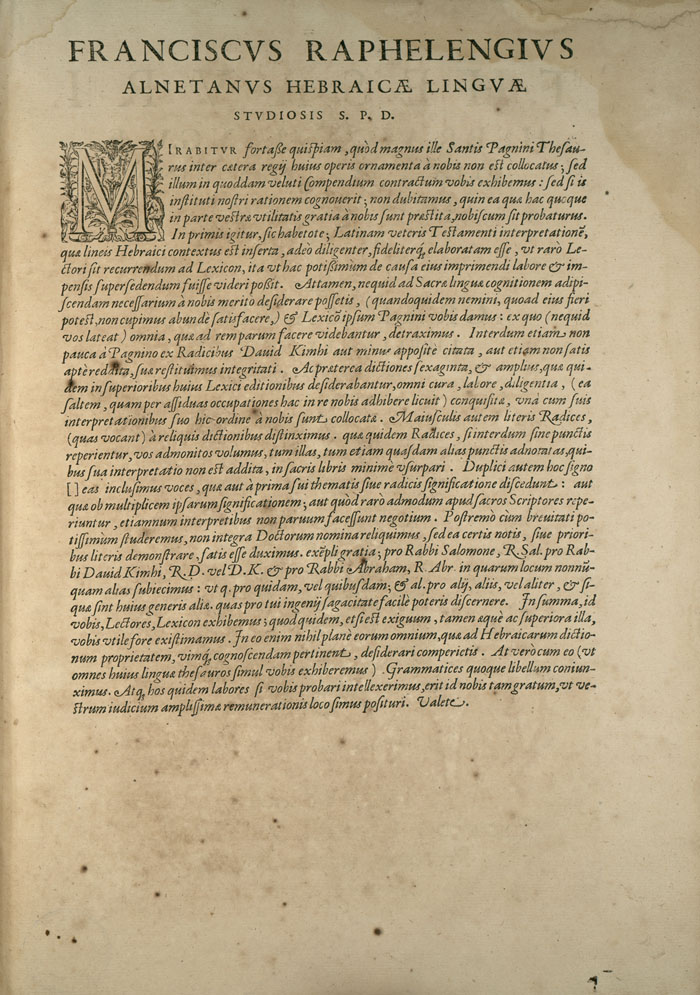 FRANCISCVS RAPHELENGIVS
ALNETANVS HEBRAICÆ LINGVÆ
STVDIOSIS S. P. D.
MIRABITVR fortaße quiſpiam, quòd magnus ille Santis Pagnini Theſau-
rus inter cætera regij huius operis ornamenta à nobis non eſt collocatus; ſed
illum in quoddam veluti Compendium contractum vobis exhibemus: ſed ſi is
inſtituti noſtri rationem cognouerit; non dubitamus, quin ea quæ hac quoque
in parte veſtræ vtilitatis gratia à nobis ſunt præſtita, nobiſcum ſit probaturus.
In primis igitur, ſic habetote; Latinam veteris Teſtamenti interpretationē,
quæ lineis Hebraici contextus eſt inſerta, adeò diligenter, fideliterq́, elaboratam eſſe, vt rarò Le-
ctori ſit recurrendum ad Lexicon, ita vt hac potißimum de cauſa eius imprimendi labore & im-
penſis ſuperſedendum fuiſſe videri poßit. Attamen, nequid ad Sacræ linguæ cognitionem adipi-
ſcendam neceſſarium à nobis merito deſiderare poſſetis, (quandoquidem nemini, quoad eius fieri
poteſt, non cupimus abundè ſatisfacere,) & Lexicō ipſum Pagnini vobis damus: ex quo (nequid
vos lateat) omnia, quæ ad rem parum facere videbantur, detraximus. Interdum etiam non
pauca à Pagnino ex Radicibus Dauid Kimhi aut minus appoſite citata, aut etiam non ſatis
aptè reddita, ſuæ reſtituimus integritati. Ac præterea dictiones ſexaginta, & amplius, quæ qui-
dem in ſuperioribus huius Lexici editionibus deſiderabantur, omni cura, labore, diligentia, (ea
ſaltem, quam per aſſiduas occupationes hac in re nobis adhibere licuit) conquiſitæ, vnà cum ſuis
interpretationibus ſuo hic ordine à nobis ſunt collocatæ. Maiuſculis autem literis Radices,
(quas vocant) à reliquis dictionibus diſtinximus. quæ quidem Radices, ſi interdum ſine punctis
reperientur, vos admonitos volumus, tum illas, tum etiam quaſdam alias punctis adnotatas, qui-
bus ſua interpretatio non eſt addita, in ſacris libris minimè vſurpari. Duplici autem hoc ſigno
[ ] eas incluſimus voces, quæ aut à prima ſui thematis ſiue radicis ſignificatione diſcedunt: aut
quæ ob multiplicem ipſarum ſignificationem; aut quòd rarò admodum apud ſacros Scriptores repe-
riuntur, etiamnum interpretibus non paruum faceſſunt negotium. Poſtremò cùm breuitati po-
tißimum ſtuderemus, non integra Doctorum nomina reliquimus, ſed ea certis notis, ſiue priori-
bus literis demonſtrare, ſatis eſſe duximus. exēpli gratia; pro Rabbi Salomone, R. Sal. pro Rab-
bi Dauid Kimhi, R. D. vel D. K. & pro Rabbi Abraham, R. Abr. in quarum locum nonnū-
quam alias ſubiecimus: vt q. pro quidam, vel quibuſdam; & al. pro alij, aliis, vel aliter, & ſi-
quæ ſint huius generis aliæ. quas pro tui ingenij ſagacitate facilè poteris diſcernere. In ſumma, id
vobis, Lectores, Lexicon exhibemus; quod quidem, etſi eſt exiguum, tamen æquè ac ſuperiora illa,
vobis vtile fore exiſtimamus. In eo enim nihil planè eorum omnium, quæ ad Hebraicarum dictio-
num proprietatem, vimq́, cognoſcendam pertinent, deſiderari comperietis. At verò cùm eo (vt
omnes huius linguæ theſauros ſimul vobis exhiberemus) Grammatices quoque libellum coniun-
ximus. Atq́, hos quidem labores ſi vobis probari intellexerimus, erit id nobis tam gratum, vt ve-
ſtrum iudicium amplißimæ remunerationis loco ſimus poſituri. Valete.